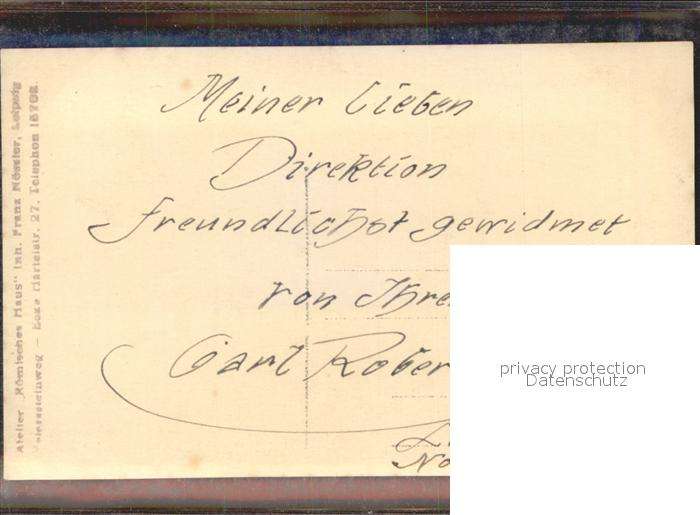 Meiner Lieben
Direktion
freundlichst gewidmet
von Ihre
Carl Rober
Nö
Atelier „Römisches Haus" Inh. Franz Hössler, Leipzig
Ecke Härtelstr. 27. Telephon 15798.
privacy protection
Datenschutz